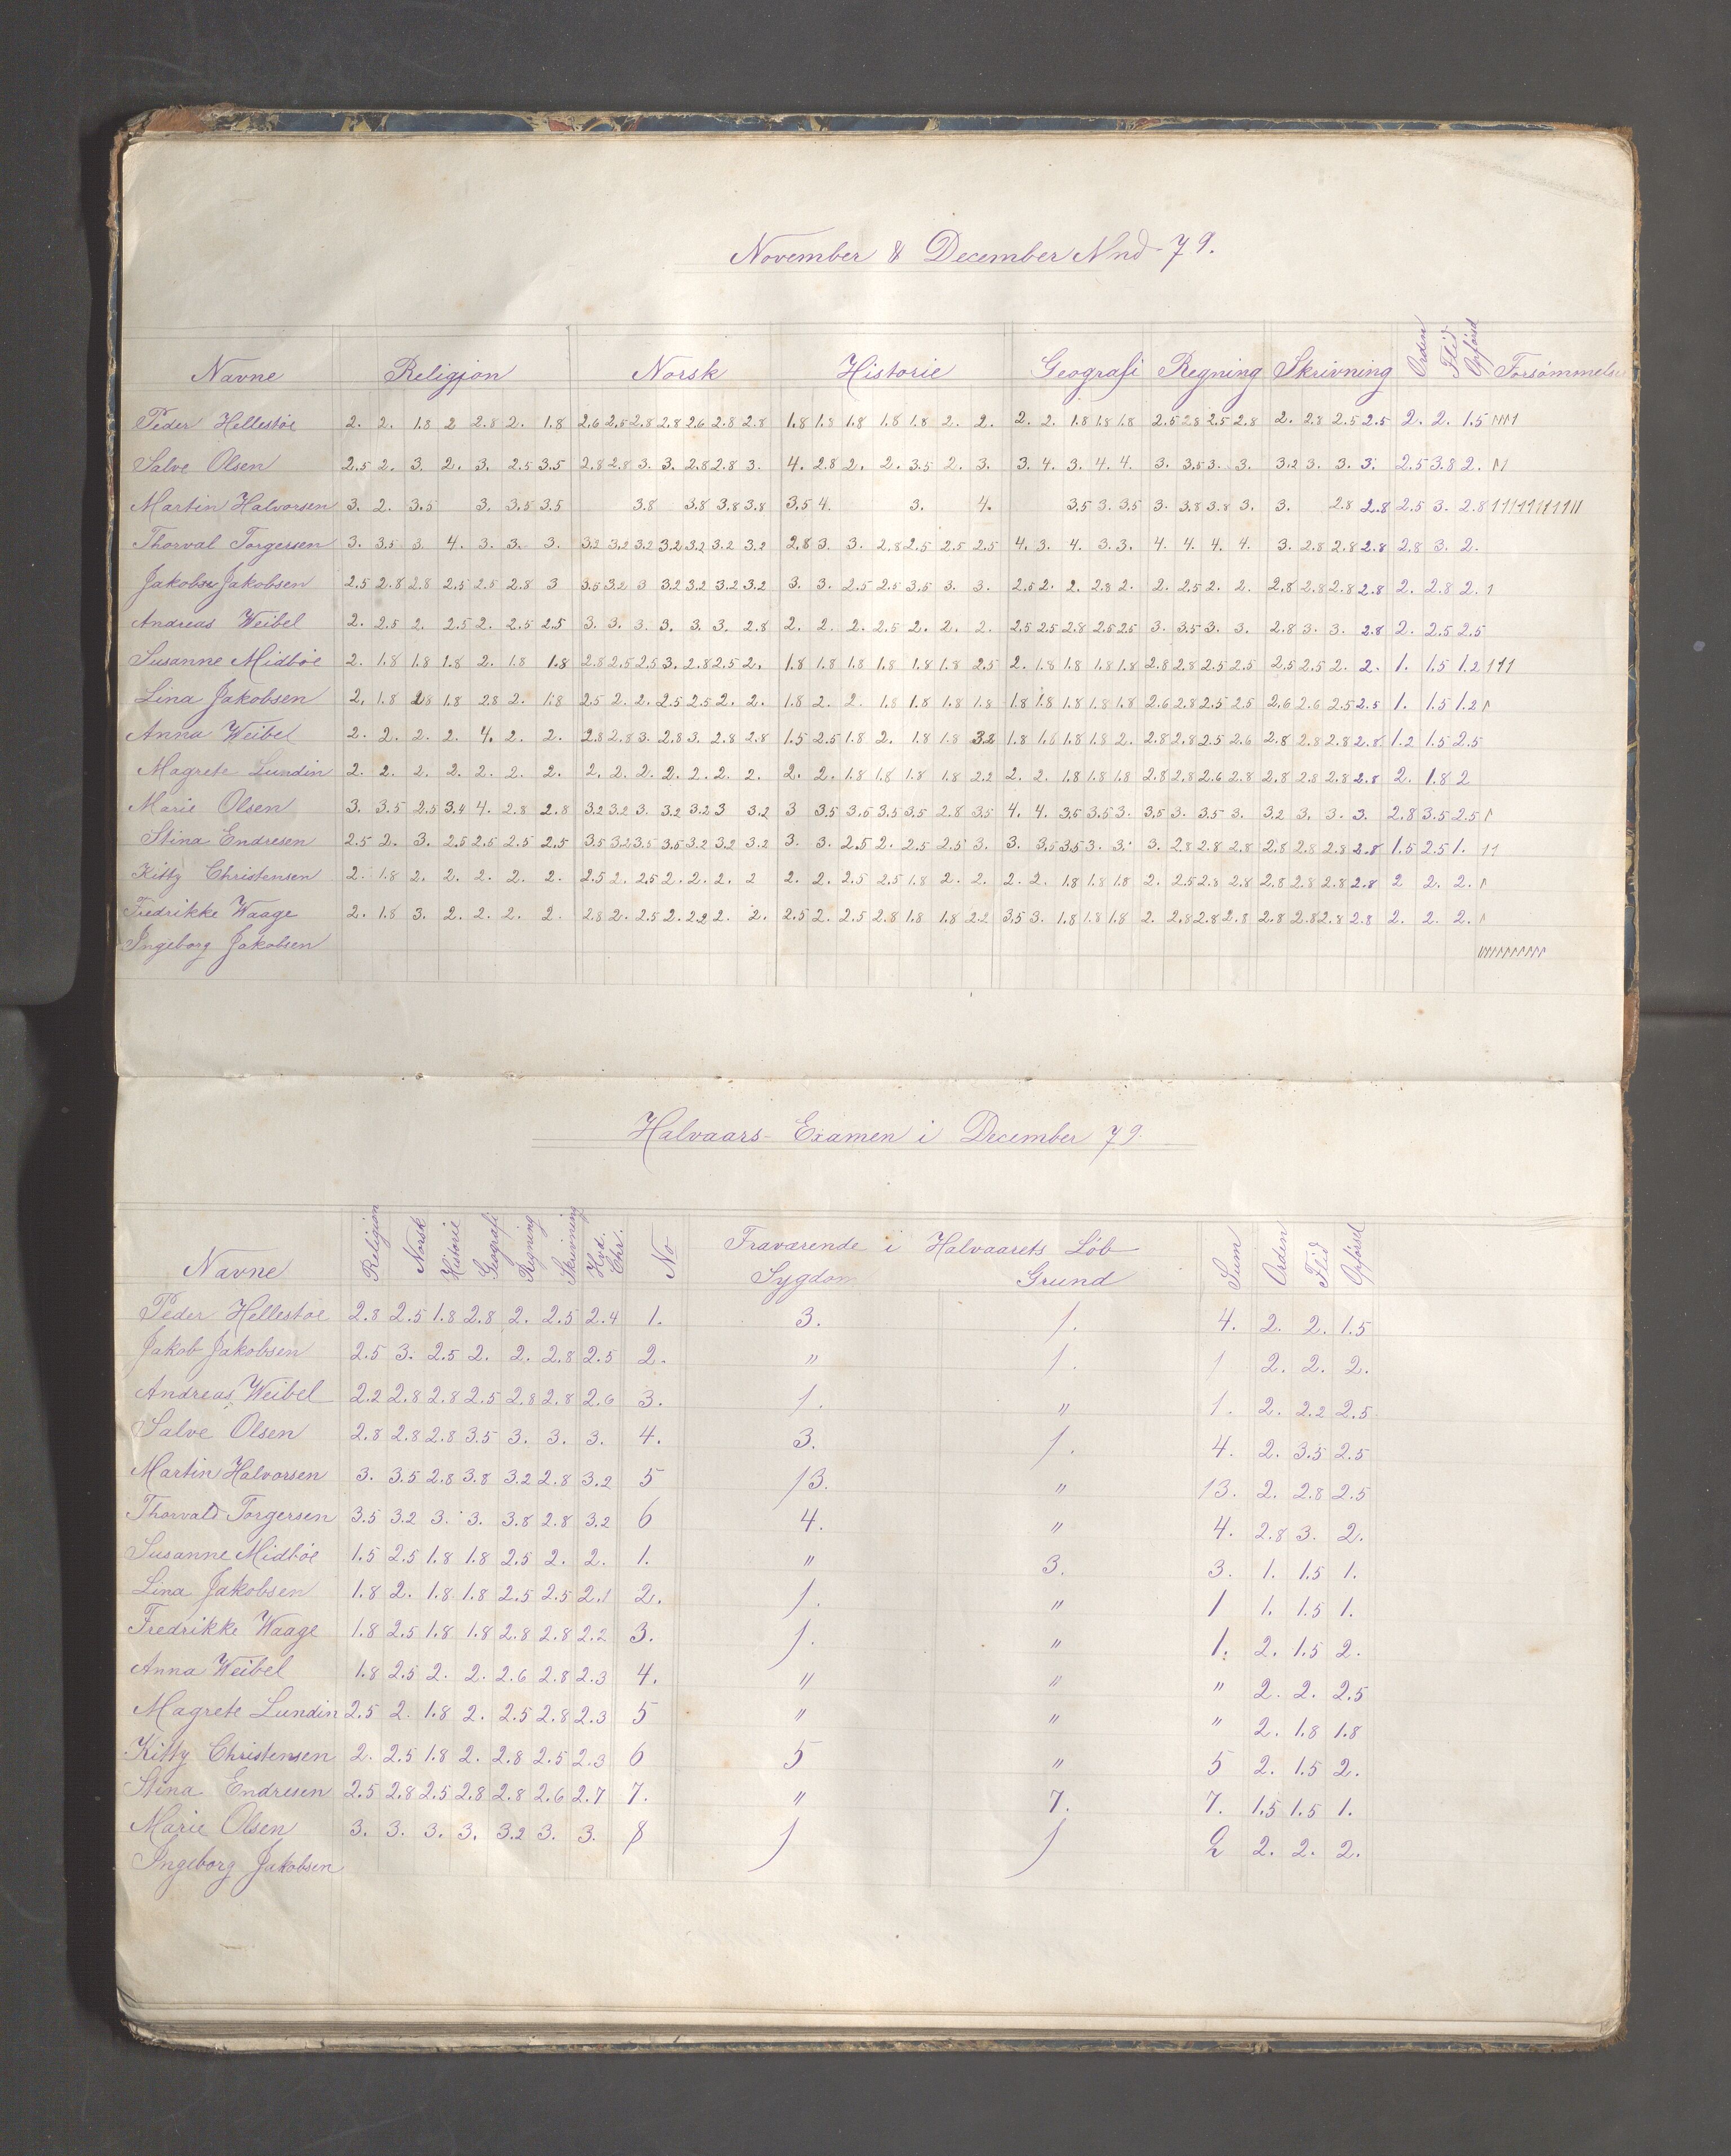 November & December Mnd-79.
Navne Religion Norsk Historie Geografi Regning Skrivning Orden Flid Opførsel Forsømmelse
Peder Hellestøe 2. 2. 1.8 2 2.8 2. 1.8 2.6 2.5 2.8 2.8 2.6 2.8 2.8 1.8 1.8 1.8 1.8 1.8 2. 2. 2. 2. 1.8 1.8 1.8 2.5 2.8 2.5 2.8 2. 2.8 2.5 2.5 2. 2. 1.5
Salve Olsen 2.5 2. 3. 2. 3. 2.5 3.5 2.8 2.8 3. 3. 2.8 2.8 3. 4. 2.8 2. 2. 3.5 2. 3. 3. 4. 3. 4. 4. 3. 3.5 3. 3. 3.2 3. 3. 3. 2.5 3.8 2.
Martin Halvorsen 3. 2. 3.5 3. 3.5 3.5 3.8 3.8 3.8 3.8 3.5 4. 3. 4. 3.5 3. 3.5 3. 3.8 3.8 3. 3. 2.8 2.8 2.5 3. 2.8
Thorval Torgersen 3. 3.5 3. 4. 3. 3. 3. 3.2 3.2 3.2 3.2 3.2 3.2 3.2 2.8 3. 3. 2.8 2.5 2.5 2.5 4. 3. 4. 3. 3. 4. 4. 4. 4. 3. 2.8 2.8 2.8 2.8 3. 2.
Jakobsen 2.5 2.8 2.8 2.5 2.5 2.8 3 3.5 3.2 3 3.2 3.2 3.2 3.2 3. 3. 2.5 2.5 3.5 3. 3. 2.5 2. 2. 2.8 2. 2. 2.5 2. 2. 2.8 2.8 2.8 2.8 2. 2.8 2.
Andreas Weibel 2. 2.5 2. 2.5 2. 2.5 2.5 3. 3. 3. 3. 3. 3. 2.8 2. 2. 2. 2.5 2. 2. 2. 2.5 2.5 2.8 2.5 2.5 3. 3.5 3. 3. 2.8 3. 3. 2.8 2. 2.5 2.5
Susanne Midbøe 2. 1.8 1.8 1.8 2. 1.8 1.8 2.8 2.5 2.5 3. 2.8 2.5 2. 1.8 1.8 1.8 1.8 1.8 1.8 2.5 2. 1.8 1.8 1.8 1.8 2.8 2.8 2.5 2.5 2.5 2.5 2. 2. 1. 1.5 1.2
Lina Jakobsen 2. 1.8 1.8 2.8 2. 1.8 2.5 2. 2. 2.5 2.5 2. 2. 1.8 2. 2. 1.8 1.8 1.8 1.8 1.8 1.8 1.8 1.8 1.8 2.6 2.8 2.5 2.5 2.6 2.6 2.5 2.5 1. 1.5 1.2
Anna Weibel 2. 2. 2. 2. 4. 2. 2. 2.8 2.8 3. 2.8 3. 2.8 2.8 1.5 2.5 1.8 2. 1.8 1.8 3.2 1.8 1.6 1.8 1.8 2. 2.8 2.8 2.5 2.6 2.8 2.8 2.8 2.8 1.2 1.5 2.5
Magrete Lundin 2. 2. 2. 2. 2. 2. 2. 2. 2. 2. 2. 2. 2. 2. 2. 2. 1.8 1.8 1.8 1.8 2.2 2. 2. 1.8 1.8 1.8 2.8 2.8 2.6 2.8 2.8 2.8 2.8 2.8 2. 1.8 2
Marie Olsen 3. 3.5 2.5 3.4 4. 2.8 2.8 3.2 3.2 3. 3.2 3.2 3 3.2 3 3.5 3.5 3.5 3.5 2.8 3.5 4. 4. 3.5 3.5 3. 3.5 3. 3.5 3. 3.2 3. 3. 3. 2.8 3.5 2.5
Stina Endresen 2.5 2. 3. 2.5 2.5 2.5 2.5 3.5 3.2 3.5 3.5 3.2 3.2 3.2 3. 3. 2.5 2. 2.5 2.5 3. 3. 3.5 3.5 3. 3. 3. 2.8 2.8 2.8 2.8 2.8 2.8 2.8 1.5 2.5 1.
Kitty Christensen 2. 1.8 2. 2. 2. 2. 2. 2.5 2. 2.5 2. 2. 2. 2 2. 2. 2.5 2.5 1.8 2. 2. 2. 2. 1.8 1.8 1.8 2. 2.5 2.8 2.8 2.8 2.8 2.8 2.8 2 2. 2.
Fredrikke Waage 2. 1.8 3. 2. 2. 2. 2. 2.8 2. 2.5 2. 2.2 2. 2. 2.5 2. 2.5 2.8 1.8 1.8 2.2 3.5 3. 1.8 1.8 1.8 2. 2.8 2.8 2.8 2.8 2.8 2.8 2.8 2. 2. 2.
Ingeborg Jakobsen
Halvaars-Examen i December 79.
Navne Religion Norsk Historie Geografi Regning Skrivning Hvd. Chr. No Fraværende i Halvaarets Løb Sum Orden Flid Opførsel
Sygdom Grund
Peder Hellestøe 2.8 2.5 1.8 2.8 2. 2.5 2.4 1. 3. 1. 4. 2. 2. 1.5
Jakob Jakobsen 2.5 3. 2.5 2. 2. 2.8 2.5 2. " 1. 1 2. 2. 2.
Andreas Weibel 2.2 2.8 2.8 2.5 2.8 2.8 2.6 3. 1. " 1. 2. 2.2 2.5
Salve Olsen 2.8 2.8 2.8 3.5 3. 3. 3. 4. 3. 1. 4. 2. 3.5 2.5
Martin Halvorsen 3. 3.5 2.8 3.8 3.2 2.8 3.2 5 13. " 13. 2. 2.8 2.5
Thorvald Torgersen 3.5 3.2 3. 3. 3.8 2.8 3.2 6 4. " 4. 2.8 3. 2.
Susanne Midbøe 1.5 2.5 1.8 1.8 2.5 2. 2. 1. " 3. 3. 1. 1.5 1.
Lina Jakobsen 1.8 2. 1.8 1.8 2.5 2.5 2.1 2. 1. " 1 1. 1.5 1.
Fredrikke Waage 1.8 2.5 1.8 1.8 2.8 2.8 2.2 3. 1. " 1. 2. 1.5 2.
Anna Weibel 1.8 2.5 2. 2. 2.6 2.8 2.3 4. " " " 2. 2. 2.5
Magrete Lundin 2.5 2. 1.8 2. 2.5 2.8 2.3 5 " " " 2. 1.8 1.8
Kitty Christensen 2. 2.5 1.8 2. 2.8 2.5 2.3 6 5 " 5 2. 1.5 2.
Stina Endresen 2.5 2.8 2.5 2.8 2.8 2.6 2.7 7. " 7. 7. 1.5 1.5 1.
Marie Olsen 3. 3. 3. 3. 3.2 3. 3. 8 1 1 2 2. 2. 2.
Ingeborg Jakobsen